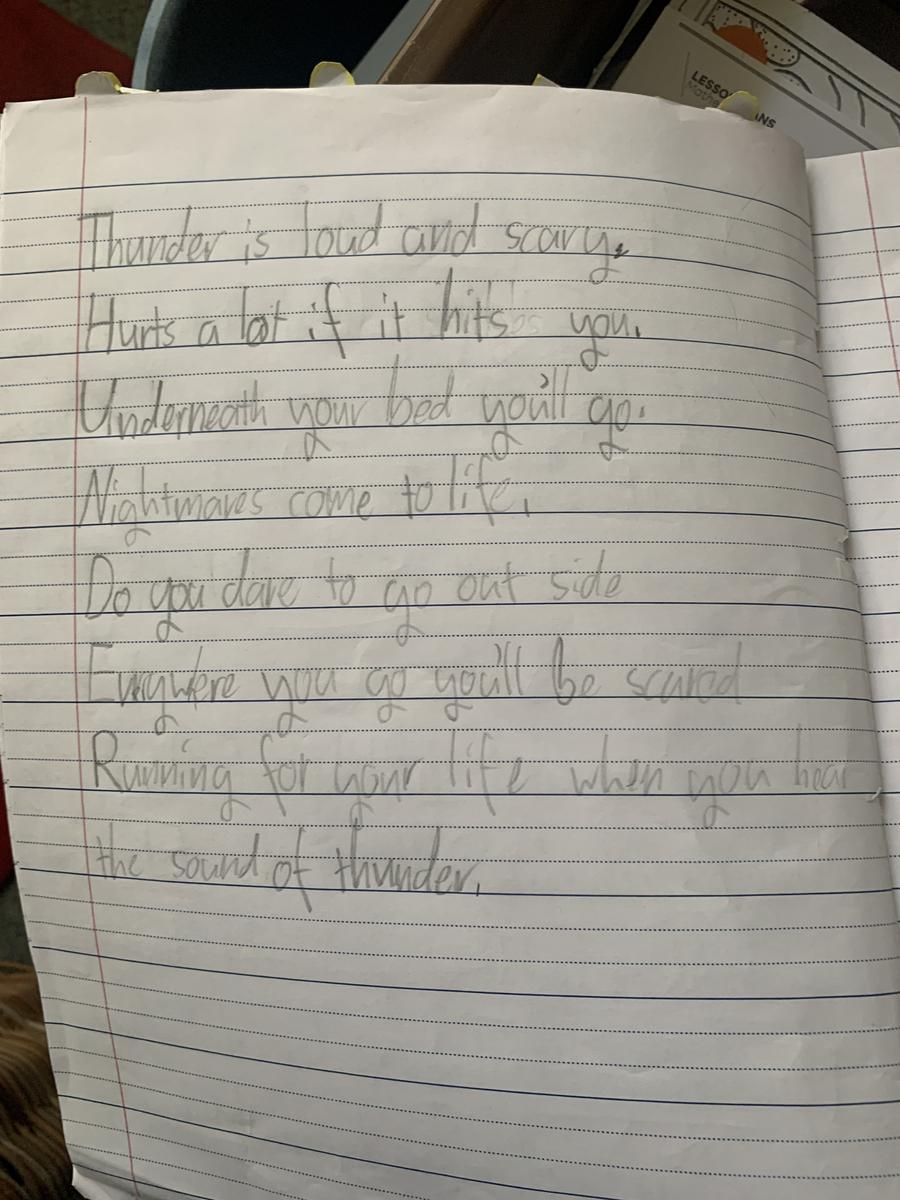 LESSO
ANS
Thunder is loud and scary.
Hurts a lot if it hits you.
Underneath your bed you'll go.
Nightmares come to life.
Do you dare to go out side
Everywere you go you'll be scared
Running for your life when you hear
the sound of thunder.